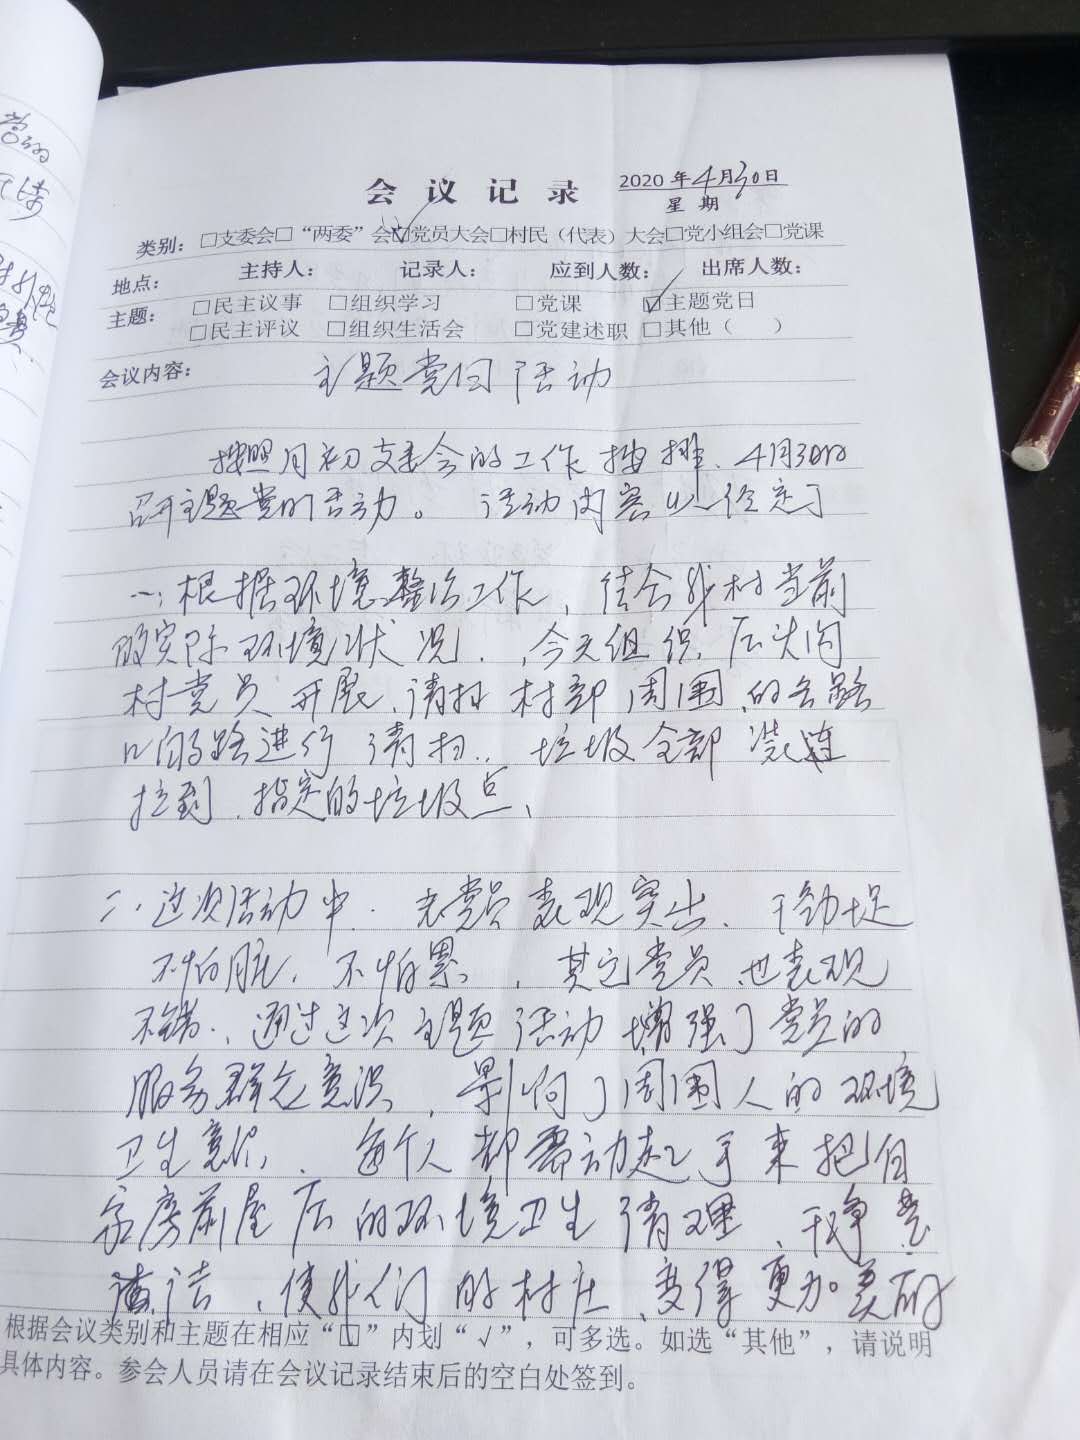 会议记录 2020年4月30日
星期
类别：□支委会□“两委”会☑党员大会□村民（代表）大会□党小组会□党课
地点： 主持人： 记录人： 应到人数： 出席人数：
主题： □民主议事 □组织学习 □党课 ☑主题党日
□民主评议 □组织生活会 □党建述职 □其他（ ）
会议内容： 主题党日活动
按照月初支委会的工作按排、4月30日
召开主题党日活动。 活动内容
一、根据环境整治工作，结合我村当前
的实际环境状况．，今天组织
村党员开展、清扫村部周围的各路
路进行清扫．．垃圾全部装链
拉到．指定的垃圾点、
二、这次活动中．老党员表现突出、干劲足
不怕脏，不怕累，其它党员也表现
不错．，通过这次主题活动增强了党员的
服务群众意识，影响了周围人的环境
卫生意识．每个人都需动起手来把自
家房前屋后的环境卫生清理、干净整
洁，使我们的村庄变得更加美丽
根据会议类别和主题在相应“□”内划“√”，可多选。如选“其他”，请说明
具体内容。参会人员请在会议记录结束后的空白处签到。